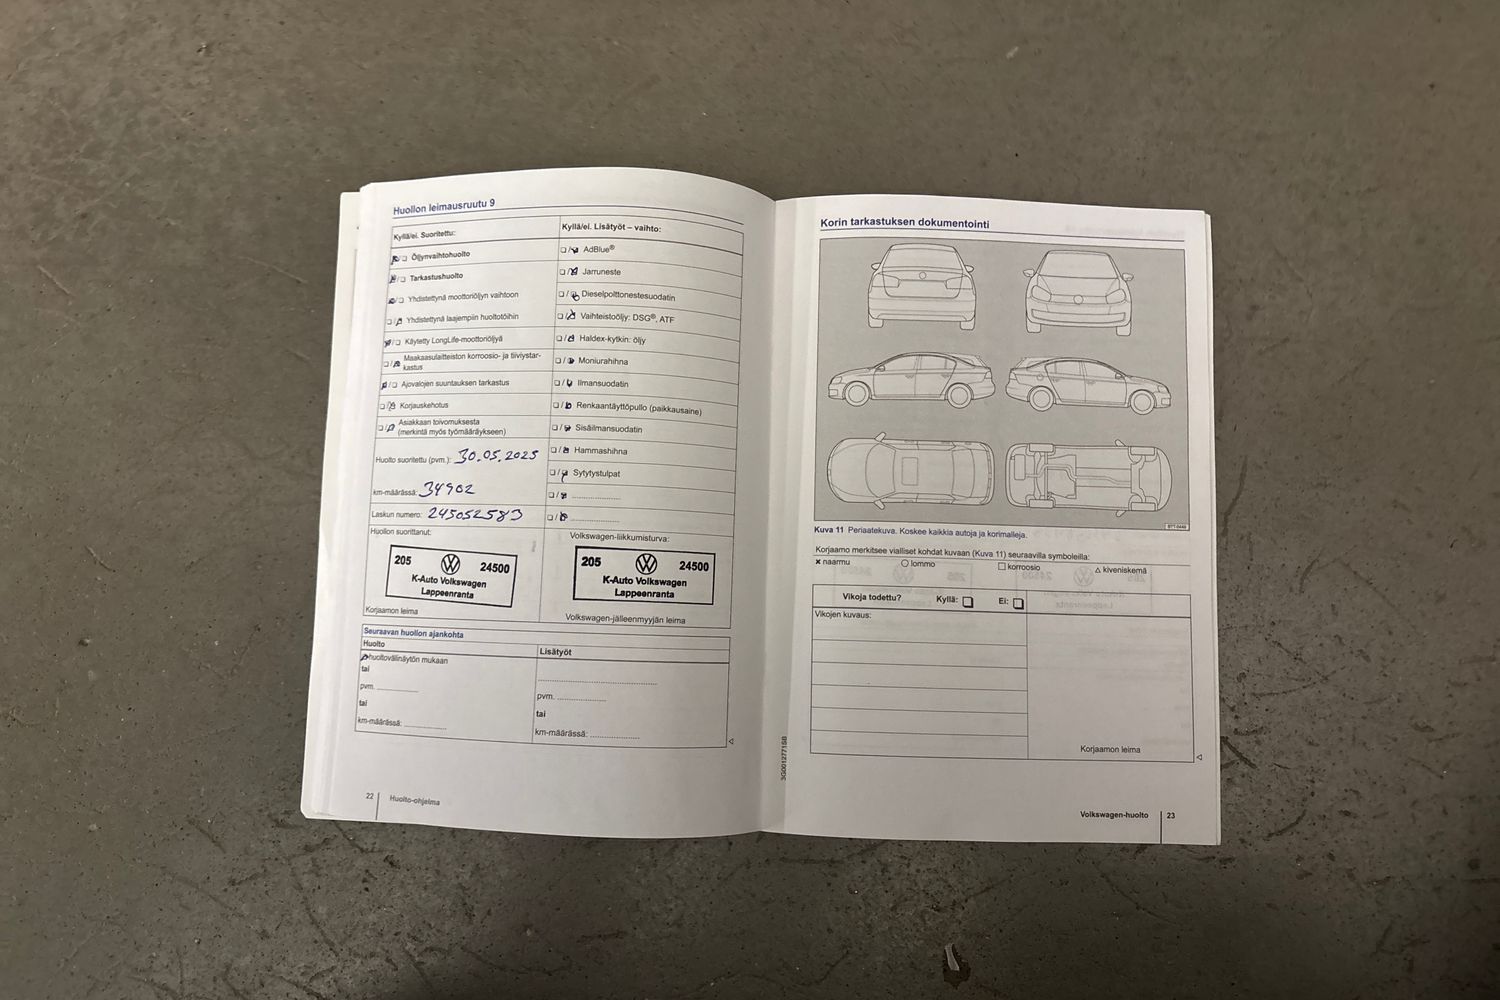 Huollon leimausruutu 9
Kyllä/ei. Suoritettu:
Öljynvaihtohuolto
Tarkastushuolto
Yhdistettynä moottoriöljyn vaihtoon
Yhdistettynä laajempiin huoltotöihin
Käytetty LongLife-moottoriöljyä
Maakaasulaitteiston korroosio- ja tiiviystar-
kastus
Ajovalojen suuntauksen tarkastus
Korjauskehotus
Asiakkaan toivomuksesta
(merkintä myös työmääräykseen)
Huolto suoritettu (pvm.): 30.05.2025
km-määrässä: 34902
Laskun numero: 245052583
Huollon suorittanut:
205 24500
K-Auto Volkswagen
Lappeenranta
Korjaamon leima
Kyllä/ei. Lisätyöt – vaihto:
AdBlue®
Jarruneste
Dieselpolttonestesuodatin
Vaihteistoöljy: DSG®, ATF
Haldex-kytkin: öljy
Moniurahihna
Ilmansuodatin
Renkaantäyttöpullo (paikkausaine)
Sisäilmansuodatin
Hammashihna
Sytytystulpat
Volkswagen-liikkumisturva:
205 24500
K-Auto Volkswagen
Lappeenranta
Volkswagen-jälleenmyyjän leima
Seuraavan huollon ajankohta
Huolto
huoltovälinäytön mukaan
tai
pvm.
tai
km-määrässä:
Lisätyöt
pvm.
tai
km-määrässä:
22 Huolto-ohjelma
Korin tarkastuksen dokumentointi
Kuva 11 Periaatekuva. Koskee kaikkia autoja ja korimalleja.
Korjaamo merkitsee vialliset kohdat kuvaan (Kuva 11) seuraavilla symboleilla:
naarmu lommo korroosio kiveniskemä
Vikoja todettu? Kyllä: Ei:
Vikojen kuvaus:
Korjaamon leima
3G0012771SB
Volkswagen-huolto 23